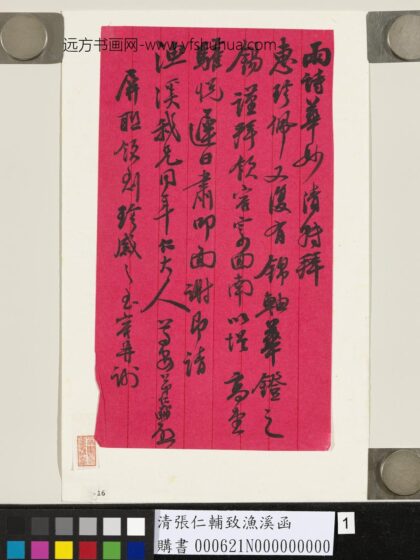 远方书画网-www.yfshuhua.com
兩詩華妙清特拜
惠珍佩又復有錦軸華鐙之
錫謹拜領容高
騶悅遲日肅叩面謝即請
漁溪我兄同年仁大人
屏聯領到珍感之至容再謝
16
清張仁輔致漁溪函
購書 000621N000000000
1